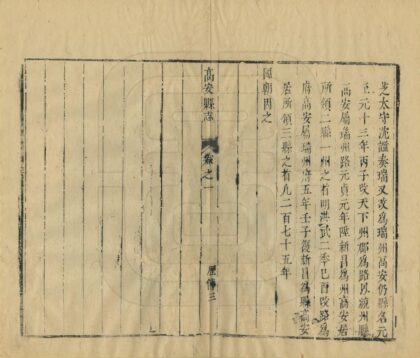 芝太守沈謐奏瑞又改爲瑞州高安仍縣名元
至元十三年丙子改天下州郡爲路以統州縣
高安屬瑞州路元貞元年陞新昌爲州高安居
所領二縣一州之首明洪武二年己酉改路爲
府高安屬瑞州府五年壬子復新昌爲縣高安
居所領三縣之首凡二百七十五年
國朝因之
高安縣志
卷之一
三